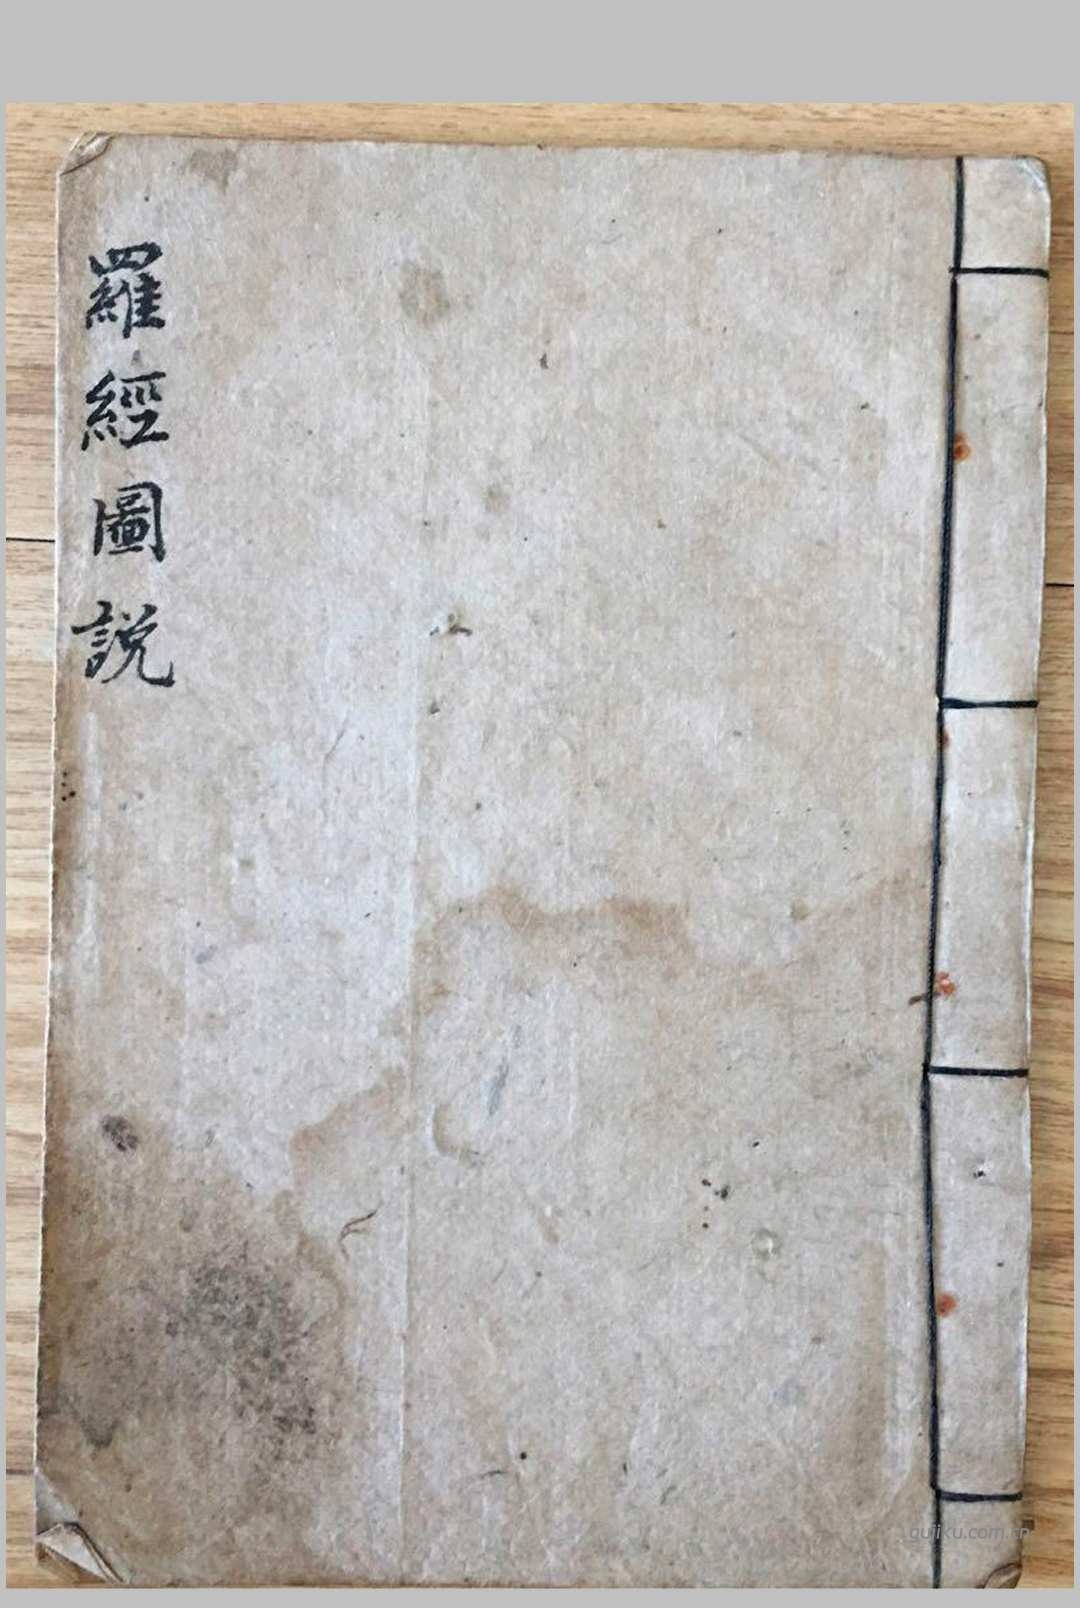 羅經圖說
gujiku.com.cn